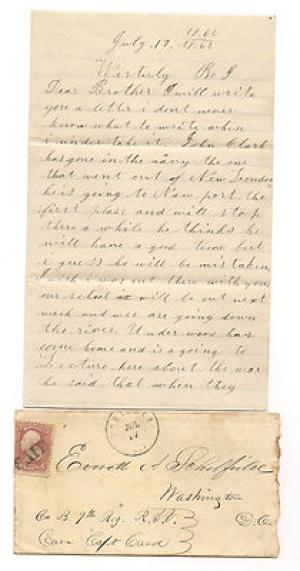 July 17. 1862
1862
Westerly R. I
Dear Brother I will write
you a letter i dont never
know what to write when
i under take it. John Clark
has gone in the navy the one
that went out of New London
he is going to Naw port the
first plase and will stop
there a while he thinks he
will have a good time but
i guess he will be mistaken
I wish i was out there with you
our school will be out next
week and wee are going down
the river. Under wood has
come home and is going to
Lecture here about the war
he said that when they
JUL
17
PAID
A
Washington
D. C.
Co B. 9th Reg. R. I. V.
Care Capt Card